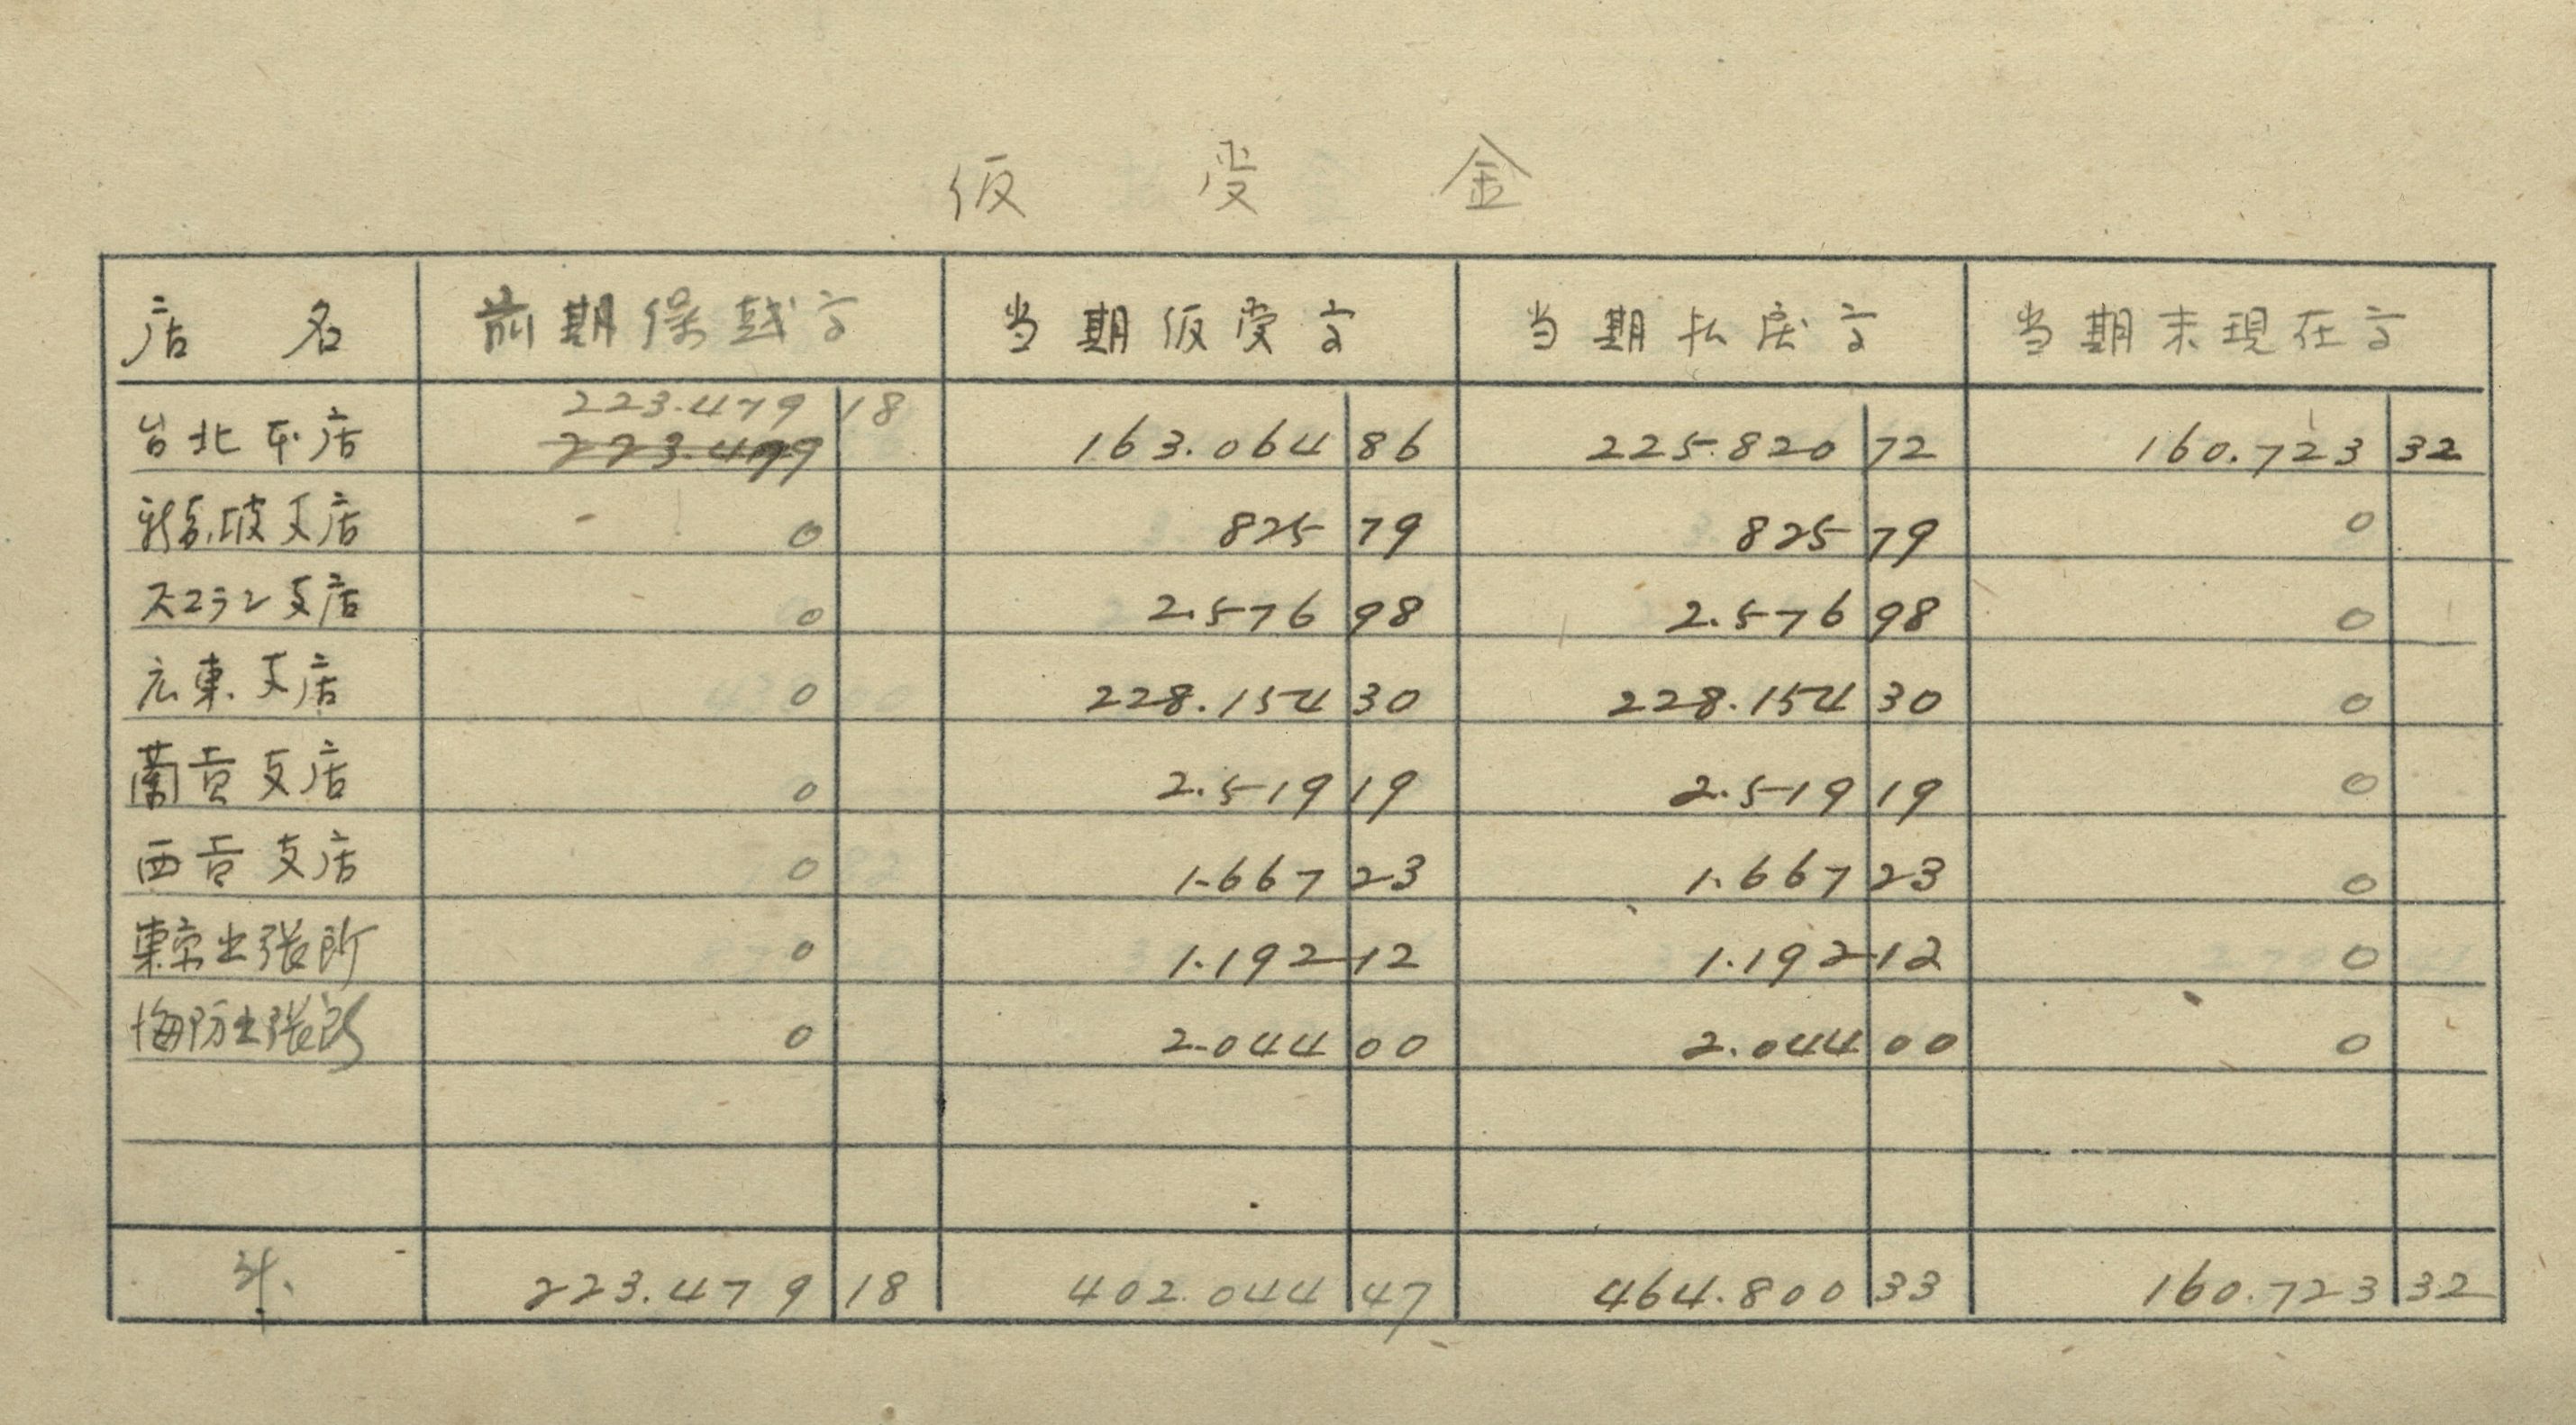 仮受金
店名 前期繰越高 当期仮受高 当期払戻高 当期末現在高
223.479 18
台北本店 223.479 163.064 86 225.820 72 160.723 32
新嘉坡支店 0 825 79 825 79 0
スマラン支店 0 2.576 98 2.576 98 0
広東支店 0 228.154 30 228.154 30 0
蘭貢支店 0 2.519 19 2.519 19 0
西貢支店 0 1.667 23 1.667 23 0
東京出張所 0 1.192 12 1.192 12 0
海防出張所 0 2.044 00 2.044 00 0
計 223.479 18 402.044 47 464.800 33 160.723 32